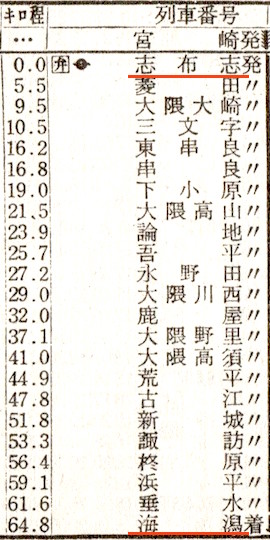 キロ程 列車番号
… 宮崎発
0.0 弁 志布志発
5.5 菱田〃
9.5 大隅大崎〃
10.5 三文字〃
16.2 東串良〃
16.8 串良〃
19.0 下小原〃
21.5 大隅高山〃
23.9 論地〃
25.7 吾平〃
27.2 永野田〃
29.0 大隅川西〃
32.0 鹿屋〃
37.1 大隅野里〃
41.0 大隅高須〃
44.9 荒平〃
47.8 古江〃
51.8 新城〃
53.3 諏訪〃
56.4 柊原〃
59.1 浜平〃
61.6 垂水〃
64.8 海潟着